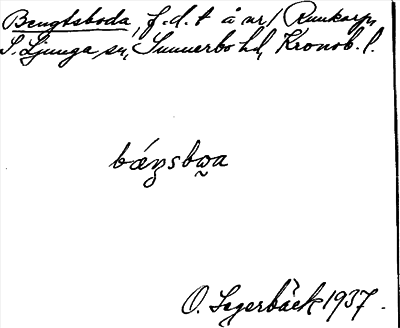 Bengtsboda, f.d.t å nr 1 Runkarp,
S. Ljunga sn, Sunnerbo hd, Kronob. l.
bǽŋsbω̰a
O. Segerbäck 1937.